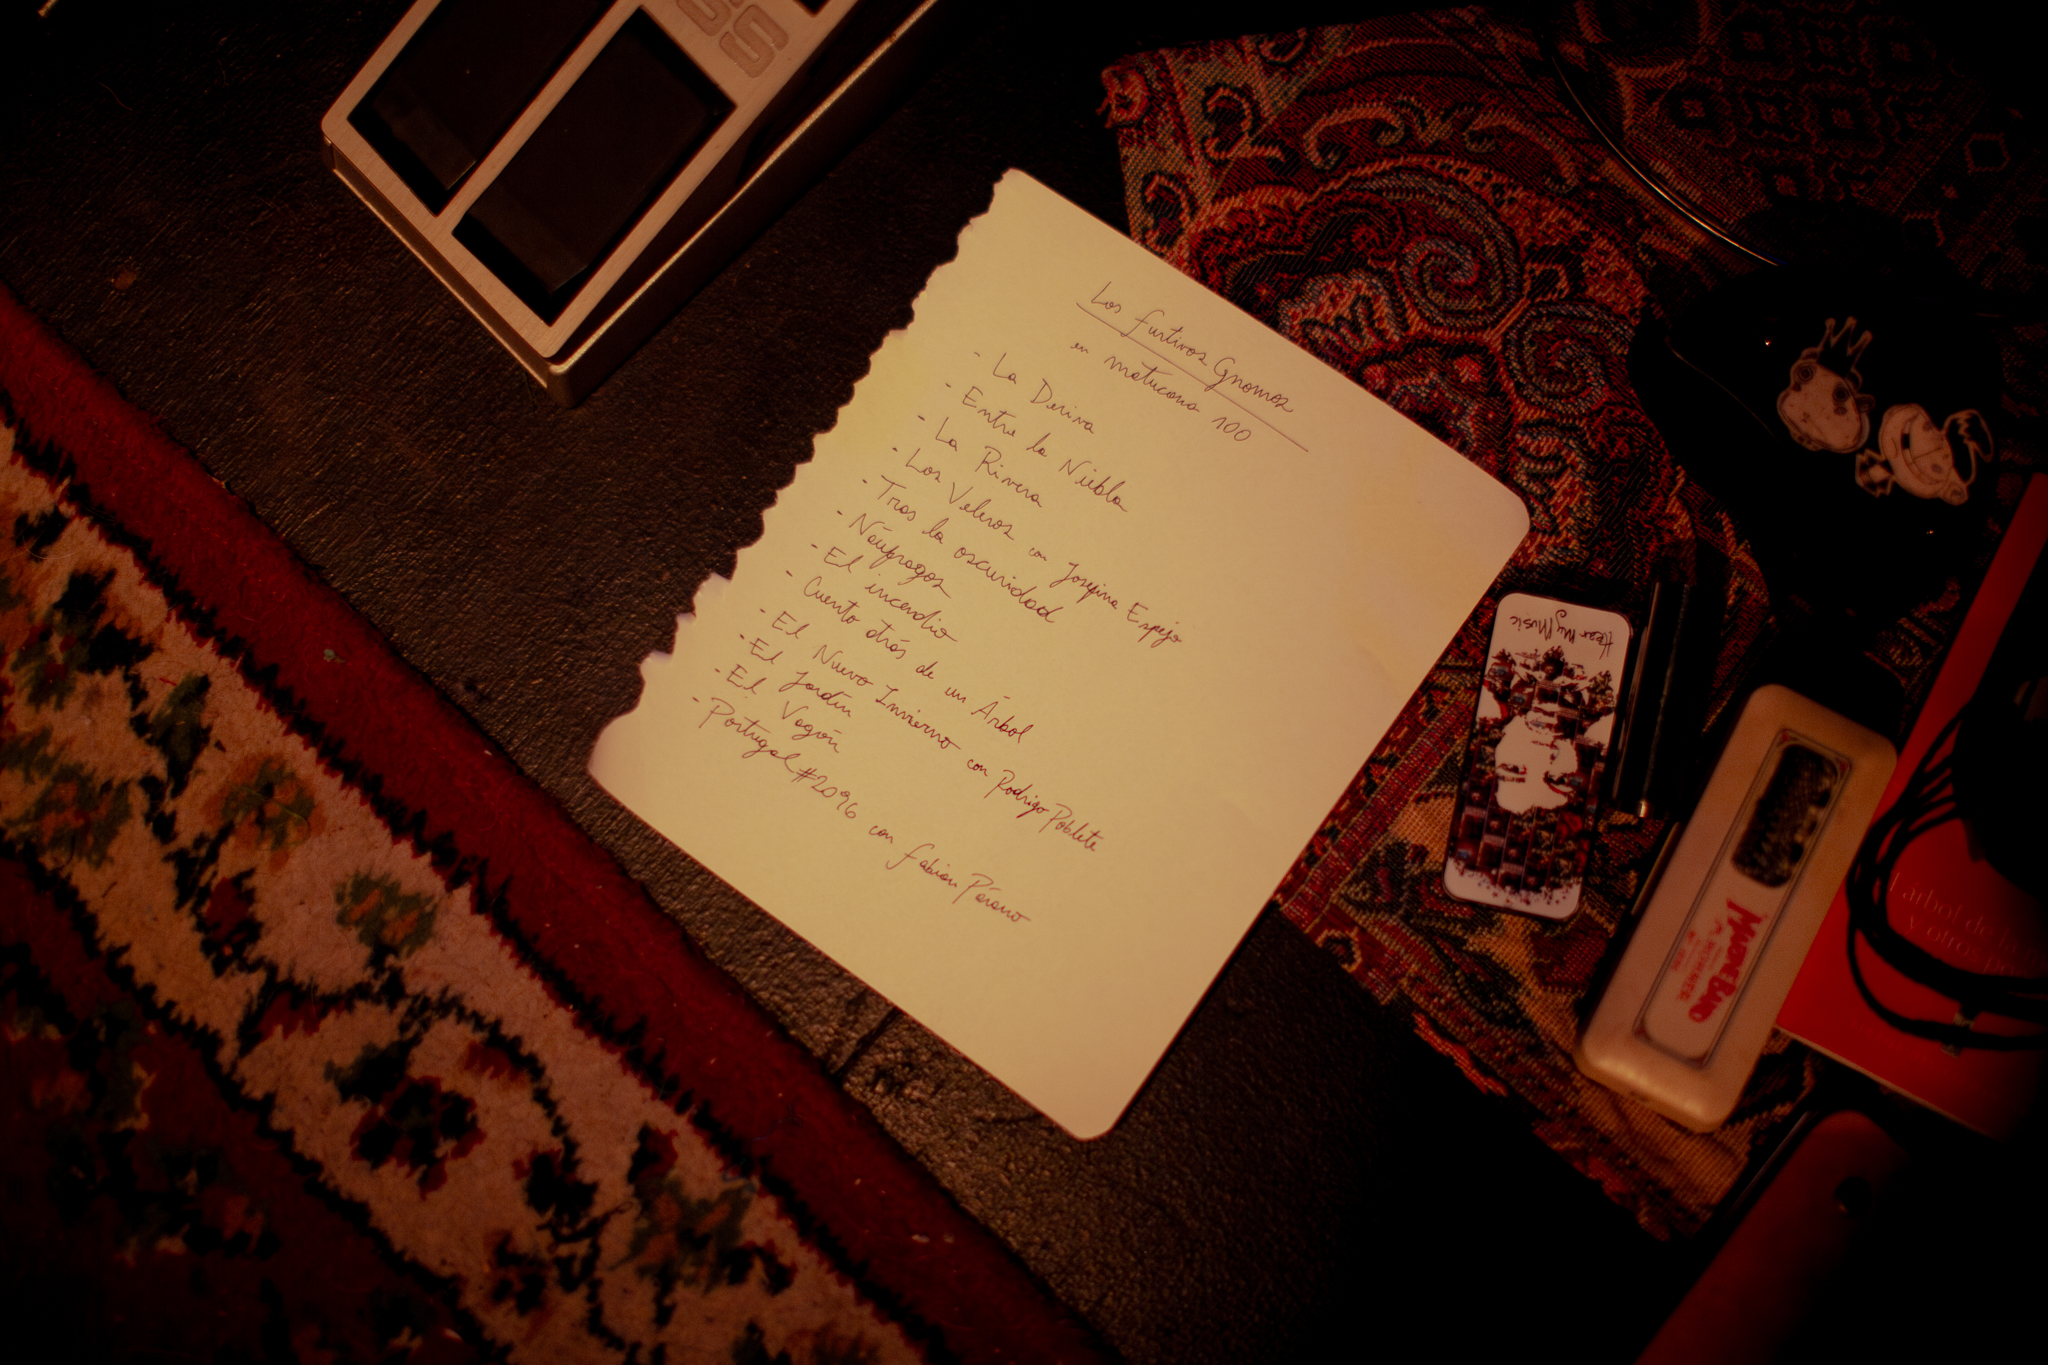 Los furtivos Gnomos
en matucana 100
- La Deriva
- Entre la Niebla
- La Rivera
- Los Veleros con Josefina Espejo
- Tras la oscuridad
- Náufragos
- El incendio
- Cuento atrás de un Árbol
- El Nuevo Invierno con Rodrigo Poblete
- El Jardín
- El Vagón
- Portugal #2096 con fabian
Hear My Music
MARINE BAND
árbol de la
Y otros